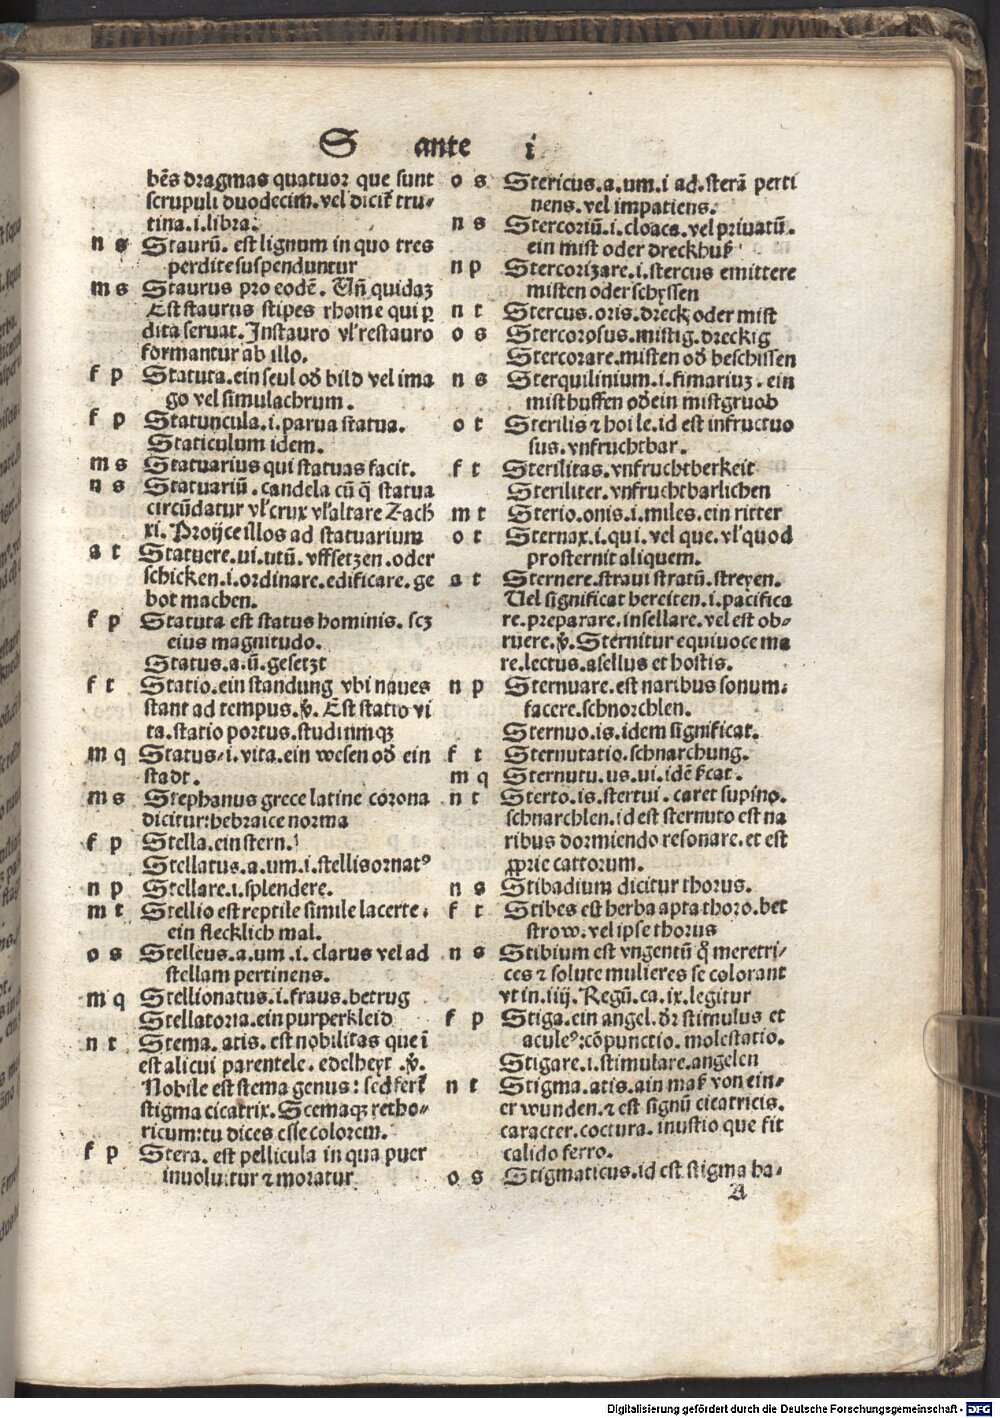 S ante i
bẽs dragmas quatuor que sunt
scrupuli duodecim. vel dicit̃ tru-
tina.i.libra.
n s Staurũ. est lignum in quo tres
perdite suspenduntur
m s Staurus pro eodẽ. Vñ quidaꝫ
Est staurus stipes rhome qui ꝑ
dita seruat. Instauro vl' restauro
formantur ab illo.
f p Statuta. ein seul od̃ bild vel ima
go vel simulachrum.
f p Statuncula.i.parua statua.
Staticulum idem.
m s Statuarius qui statuas facit.
n s Statuariũ. candela cũ q̃ statua
circũdatur vl' crux vl' altare Zach
xi. Proijce illos ad statuarium
a t Statuere.ui.utũ. vffsetzen.oder
schicken.i.ordinare.edificare.ge
bot machen.
f p Statuta est status hominis. scꝫ
eius magnitudo.
Status.a.ũ.gesetzt
f t Statio.ein standung vbi naues
stant ad tempus.ṽ. Est statio vi
ta.statio portus.studiumqꝫ
m q Status.i.vita.ein wesen od̃ ein
stadt.
m s Stephanus grece latine corona
dicitur:hebraice norma
f p Stella.ein stern.
Stellatus.a.um.i.stellis ornatꝰ
n p Stellare.i.splendere.
m t Stellio est reptile simile lacerte.
ein flecklich mal.
o s Stelleus.a.um.i. clarus vel ad
stellam pertinens.
m q Stellionatus.i.fraus.betrug
Stellatoria.ein purperkleid
n t Stema.atis.est nobilitas que ĩ
est alicui parentele.edelheyt.ṽ.
Nobile est stema genus: sed fert̃
stigma cicatrix. Scemaqꝫ retho-
ricum:tu dices esse colorem.
f p Stera. est pellicula in qua puer
inuoluitur ⁊ moratur
o s Stericus.a.um.i ad.sterã perti
nens.vel impatiens.
n s Stercoriũ.i.cloaca.vel priuatũ.
ein mist oder dreckhuß
n p Stercorizare.i.stercus emittere
misten oder schyssen
n t Stercus.oris.dreck oder mist
o s Stercorosus.mistig.dreckig
Stercorare.misten od̃ beschissen
n s Sterquilinium.i.fimariuꝫ.ein
misthuffen od̃ ein mistgruob
o t Sterilis ⁊ hoi le.id est infructuo
sus.vnfruchtbar.
f t Sterilitas.vnfruchtberkeit
Steriliter.vnfruchtbarlichen
m t Sterio.onis.i.miles.ein ritter
o t Sternax.i.qui.vel que.vl' quod
prosternit aliquem.
a t Sternere.straui stratũ.streyen.
Vel significat bereiten.i.pacifica
re.preparare.insellare.vel est ob-
ruere.ṽ. Sternitur equiuoce ma
re.lectus.asellus et hostis.
n p Sternuare.est naribus sonum
facere.schnorchlen.
Sternuo.is.idem significat.
f t Sternutatio.schnarchung.
m q Sternutu.us.ui.idẽ s̃cat.
n t Sterto.is.stertui. caret supino.
schnarchlen.id est sternuto est na
ribus dormiendo resonare.et est
ꝓprie cattorum.
n s Stibadium dicitur thorus.
f t Stibes est herba apta thoro.bet
strow.vel ipse thorus
n s Stibium est vngentũ q̃ meretri-
ces ⁊ solute mulieres se colorant
vt in.iiij.Regũ.ca.ix.legitur
f p Stiga.ein angel.d̃r stimulus et
aculeꝰ:cõpunctio.molestatio.
Stigare.i.stimulare.angelen
n t Stigma.atis.ain maſ von ein-
er wunden.⁊ est signũ cicatricis.
caracter.coctura. inustio que fit
calido ferro.
o s Stigmaticus.id est stigma ha-
A
Digitalisierung gefördert durch die Deutsche Forschungsgemeinschaft - DFG